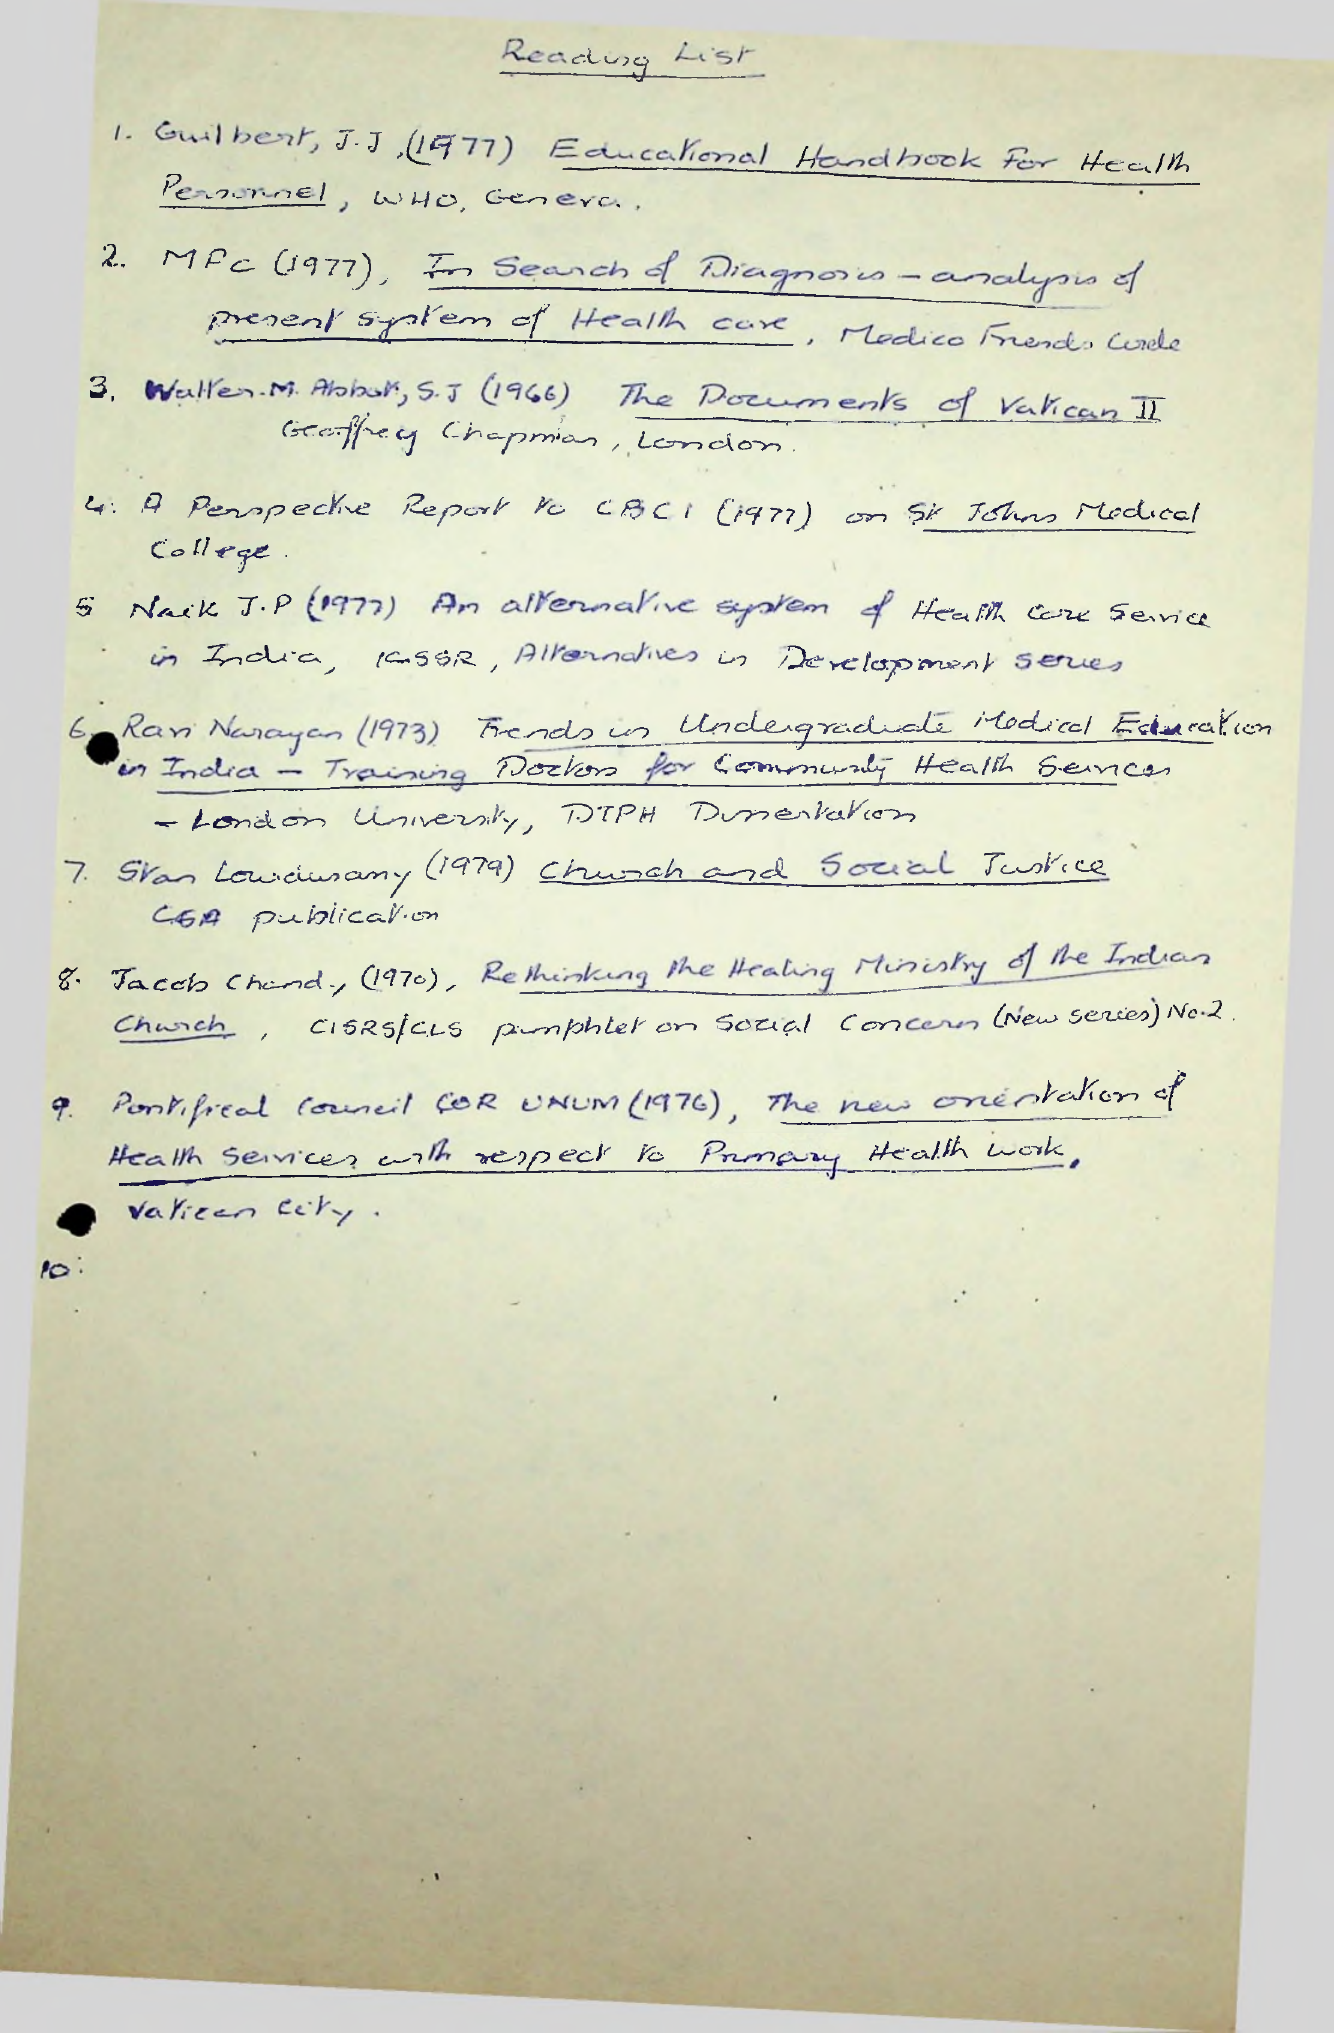 Reading List
1. Guilbert, J.J, (1977) Educational Handbook For Health
Personnel, WHO, Geneva.
2. MFC (1977), In Search of Diagnosis - analysis of
present system of Health care, Medico Friends Circle
3. Walter. M. Abbot, S.J (1966) The Documents of Vatican II
Geoffrey Chapman, London.
4. A Perspective Report to CBCI (1977) on St Johns Medical
College.
5 Naik J.P (1977) An alternative system of Health Care Service
in India, ICSSR, Alternatives in Development series
6. Ravi Narayan (1973) Trends in Undergraduate Medical Education
in India - Training Doctors for Community Health Services
- London University, DTPH Dissertation
7. Stan Lourdusamy (1979) Church and Social Justice
CSA publication
8. Jacob Chand., (1970), Rethinking the Healing Ministry of the Indian
Church, CISRS/CLS pamphlet on Social Concern (New series) No.2.
9. Pontifical Council COR UNUM (1976), The new orientation of
Health Services with respect to Primary Health work,
Vatican City.
10: